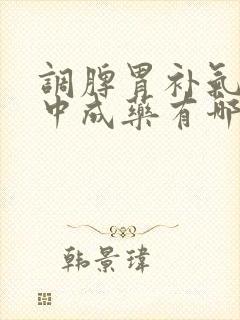 調脾胃补氣
中成藥有哪
韩景瑋